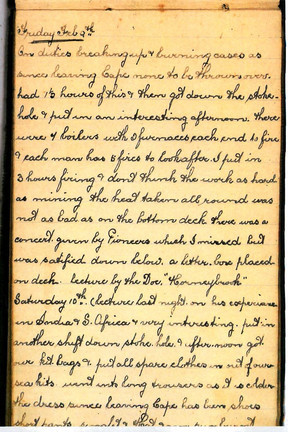 Friday Feb 9th
On duties breaking up & burning cases as
since leaving Cape none to be thrown over.
had 1½ hours of this & then got down the stoke
hole & put in an interesting afternoon. there
were 4 boilers with furnaces each end 10 fire
& each man has 5 fires to look after. I put in
3 hours firing & dont think the work as hard
as mining the heat taken all round was
not as bad as on the bottom deck there was a
concert given by Pioneers which I missed but
was satified down below. a letter box placed
on deck. lecture by the Doc. "Horneybrook"
Saturday 10th. (lecture last night on his experience
in India & S. Africa & very interesting. put in
another shift down stoke hole & after-noon got
our kit bags & put all spare clothes in out of our
sea kits. went into long trousers as it is colder
the dress since leaving Cape has been shoes
short pants